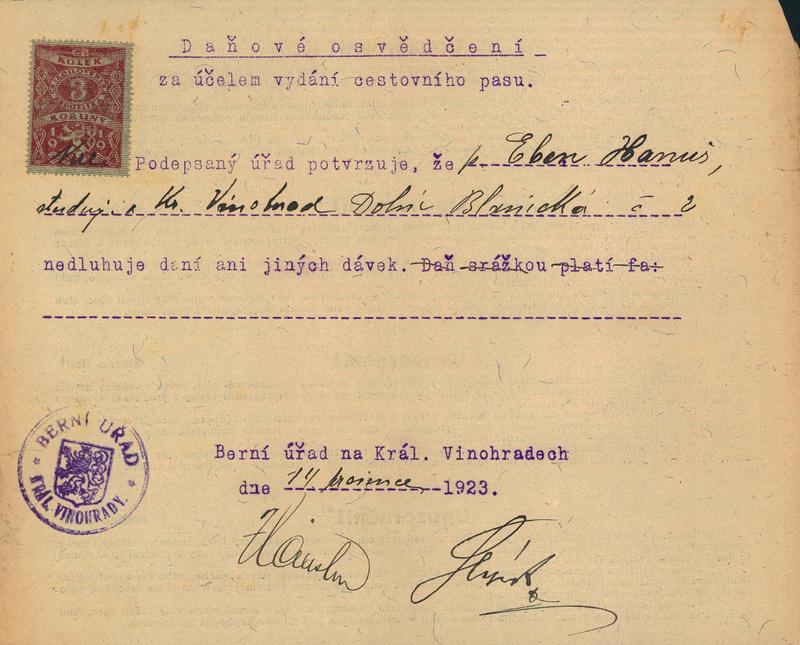 Daňové osvědčení
za účelem vydání cestovního pasu.
KOLEK
3
KORUNY
1919
Podepsaný úřad potvrzuje, že p. Eben Hanuš,
Kr. Vinohrad Dolní Blanická č 2
nedluhuje daní ani jiných dávek. Daň srážkou platí fa:
BERNÍ ÚŘAD
KRÁL. VINOHRADY.
Berní úřad na Král. Vinohradech
dne 14 prosince 1923.